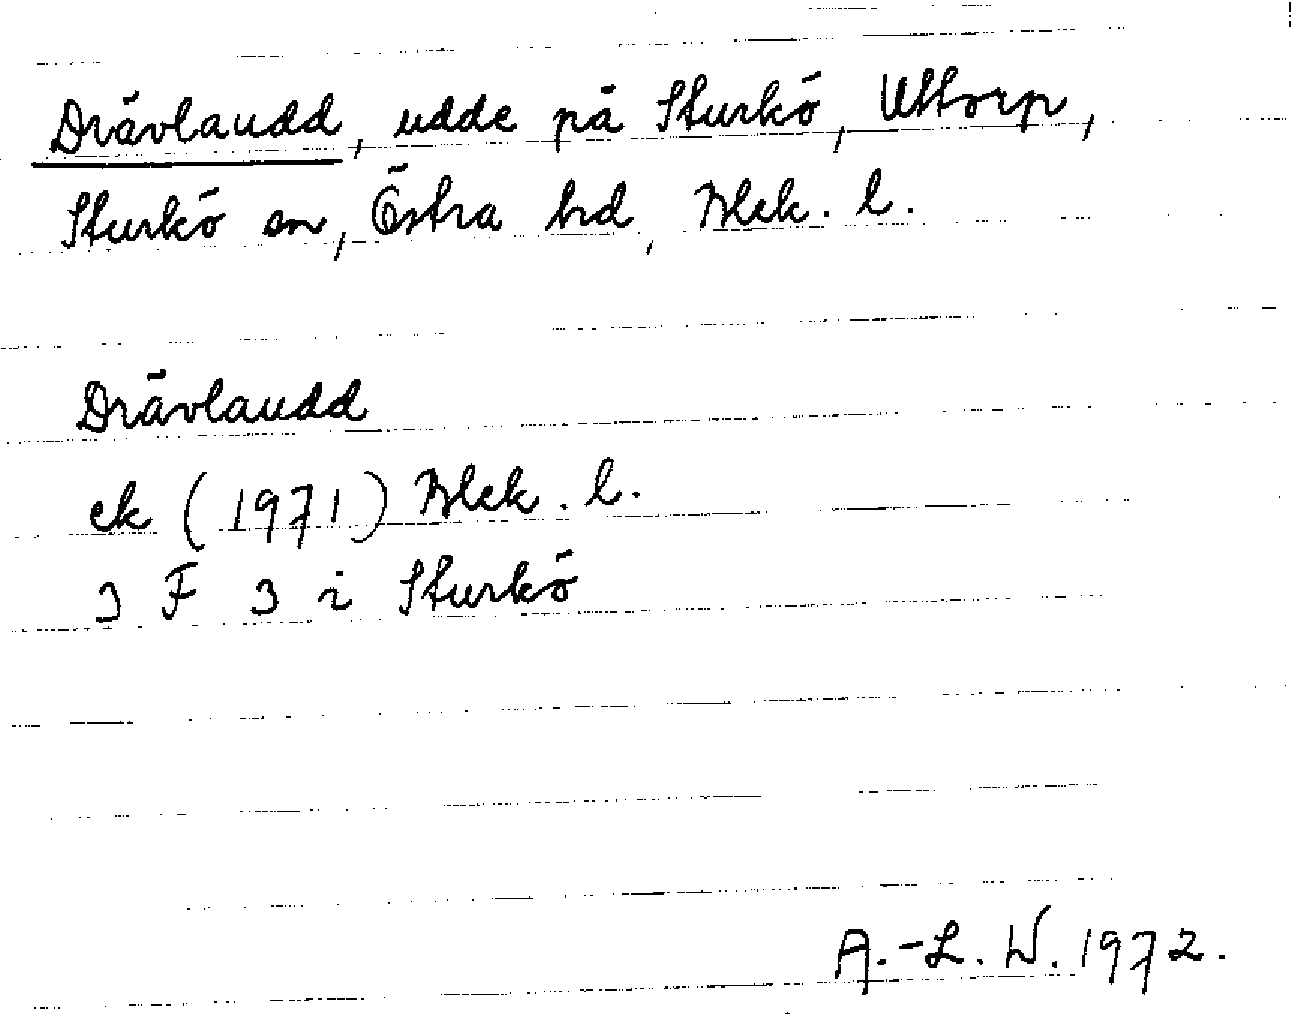 Drävlaudd, udde på Sturkö, Uttorp,
Sturkö sn, Östra hd, Blek. l.
Drävlaudd
ek (1971) Blek. l.
3 F 3 i Sturkö
A.-L. W. 1972.